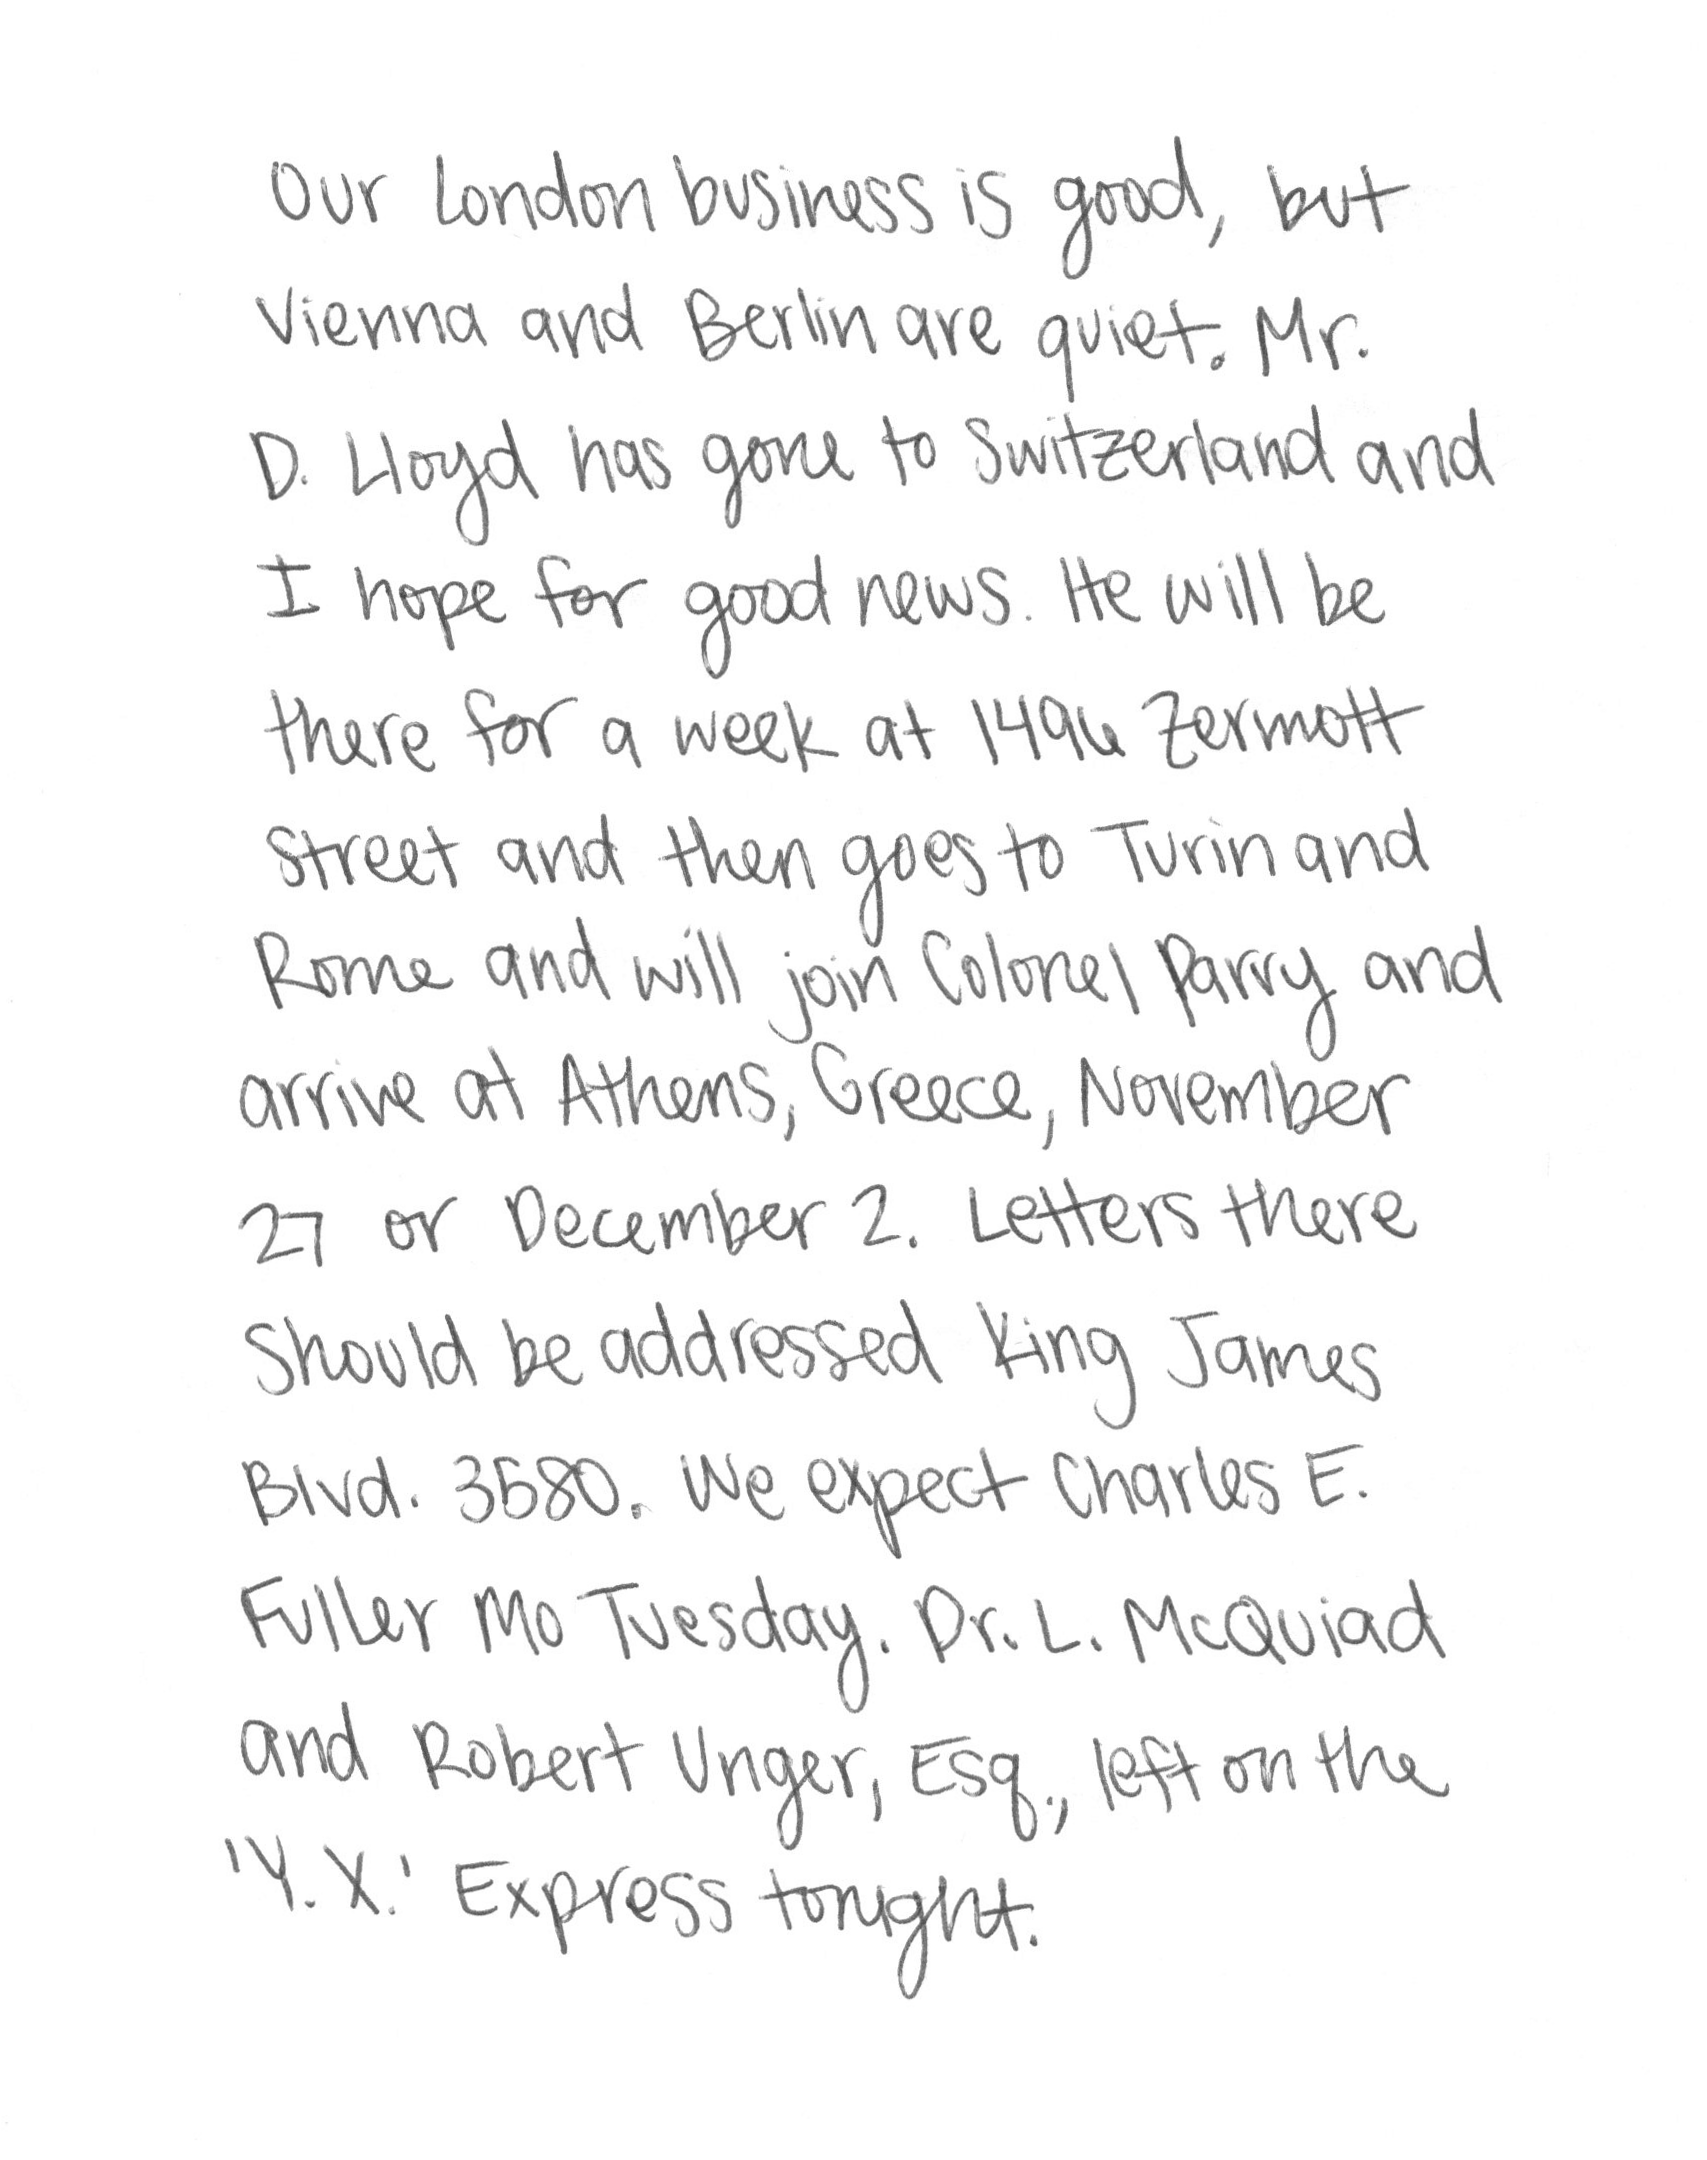 Our London business is good, but
Vienna and Berlin are quiet. Mr.
D. Lloyd has gone to Switzerland and
I hope for good news. He will be
there for a week at 1496 Zermott
Street and then goes to Turin and
Rome and will join Colonel Parry and
arrive at Athens, Greece, November
27 or December 2. Letters there
Should be addressed King James
Blvd. 3580. We expect Charles E.
Fuller Mo Tuesday. Dr. L. McQuiad
and Robert Unger, Esq., left on the
'Y. X.' Express tonight.